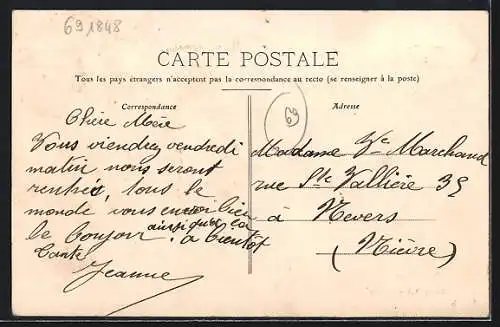 691848
CARTE POSTALE
Tous les pays étrangers n'acceptent pas la correspondance au recto (se renseigner à la poste)
Correspondance
Chère Mère
Vous viendrez vendredi
matin nous seront
rentrés, tous le
monde vous envoi bien
le bonjour. à bientot
ainsi qu'à
tante
Jeanne
Adresse
69
Madame Ve Marchand
rue Ste Vallière 35
à Nevers
(Nièvre)